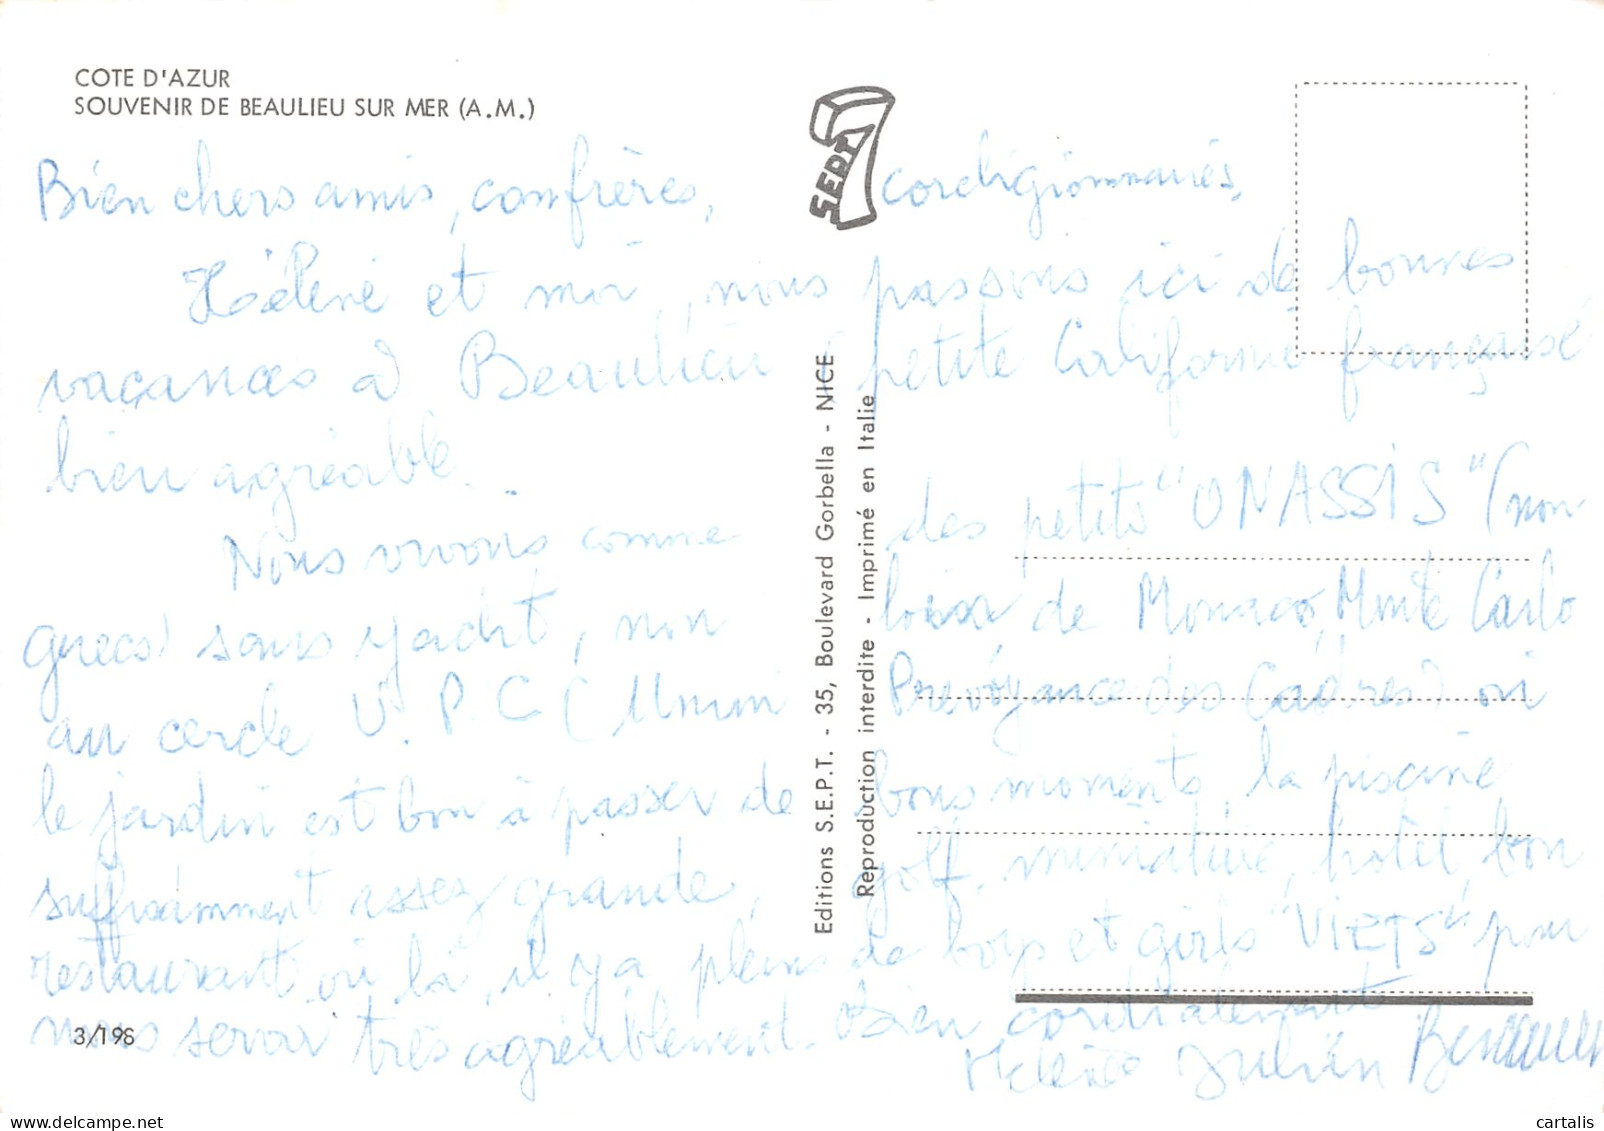 COTE D'AZUR
SOUVENIR DE BEAULIEU SUR MER (A.M.)
Bien chers amis, confrères, coreligionnaires,
Hélène et moi, nous passons ici de bonnes
vacances à Beaulieu petite Californie française
bien agréable.
Nous vivons comme des petits "ONASSIS" (non
grecs) sans yacht, non loin de Monaco, Monte Carlo
au cercle U.P.C ( Prévoyance des Cadres) où
le jardin est bon à passer de bons moments, la piscine
suffisamment assez grande, golf, miniature, hôtel, bon
restaurant où là, il y a pleins de boys et girls "VIETS" pour
nous servir très agréablement. Bien cordialement
Hélène Julien
3/198
SEPT
7
Editions S.E.P.T. - 35, Boulevard Gorbella - NICE
Reproduction interdite - Imprimé en Italie
cartalis